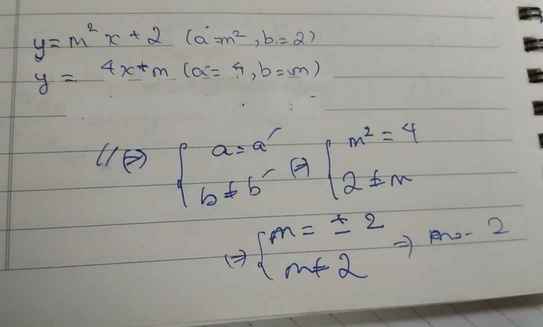 y = m² x + 2 (a = m², b = 2)
y = 4x + m (a = 4, b = m)
// ⇔ { a = a′ ⇔ { m² = 4
b ≠ b′ 2 ≠ m
⇔ { m = ± 2
m ≠ 2 ⇒ m = - 2